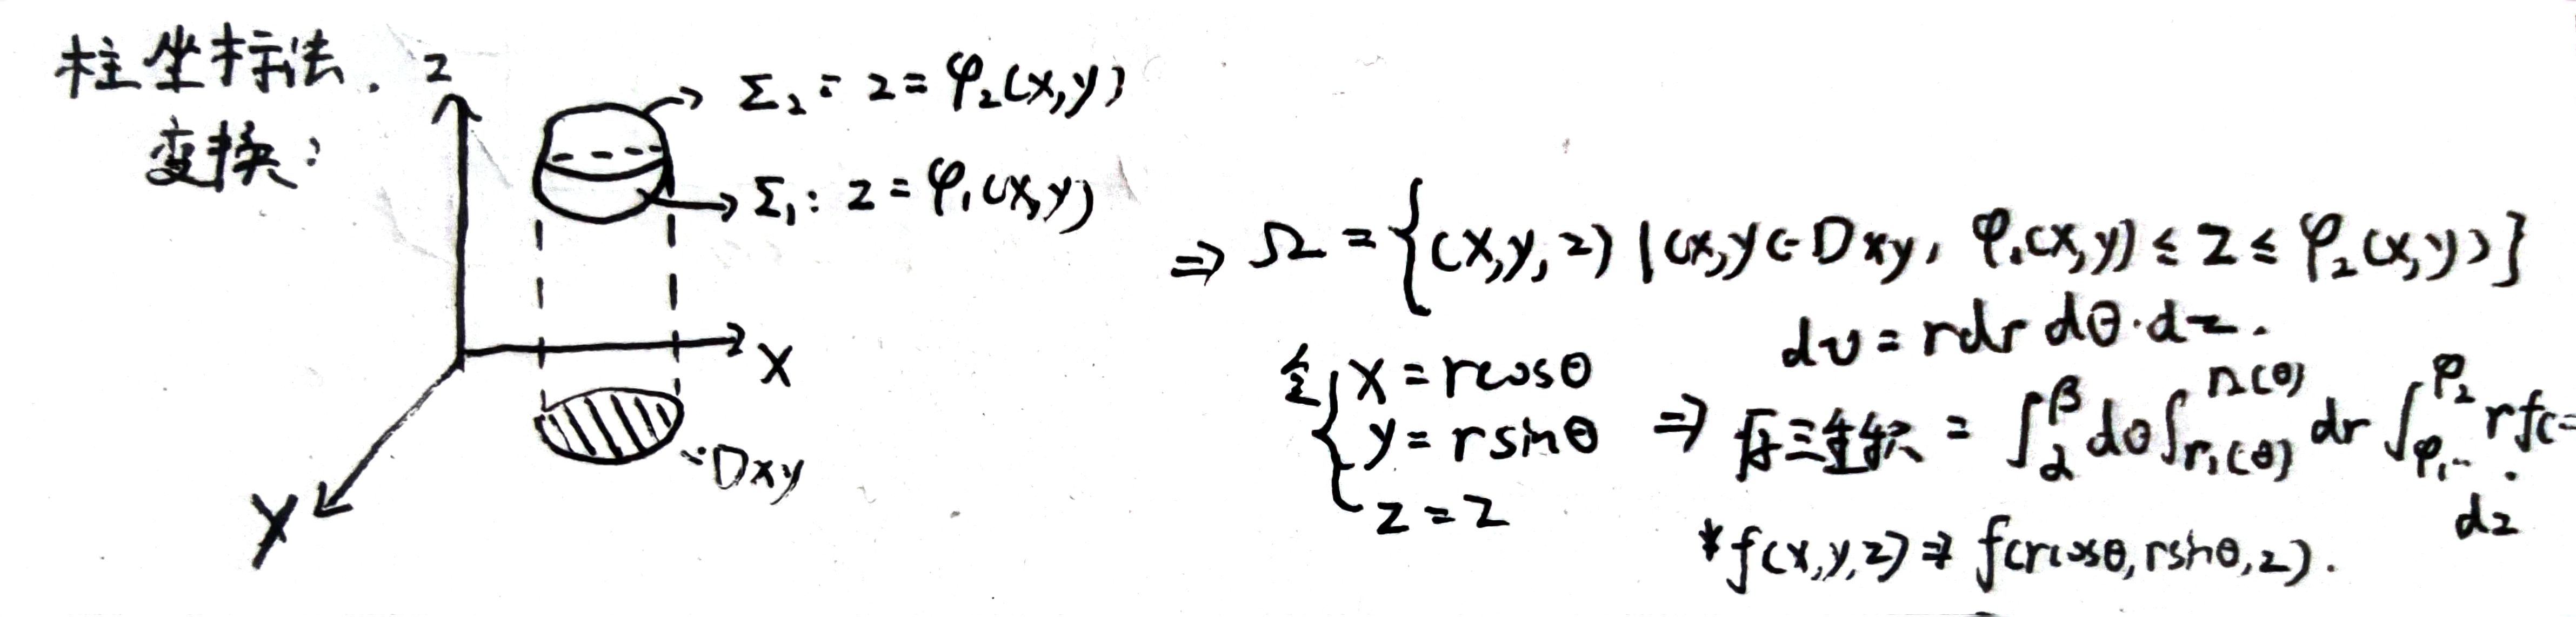 柱坐标法.
变换:
z
Σ₂: z = φ₂(x,y)
Σ₁: z = φ₁(x,y)
x
y
Dxy
⇒ Ω = {(x,y,z) | (x,y ∈ Dxy, φ₁(x,y) ≤ z ≤ φ₂(x,y)}
dv = rdr dθ·dz.
令 { x = rcosθ
y = rsinθ
z = z
⇒ 原三重积 = ∫_α^β dθ ∫_{r₁(θ)}^{r₂(θ)} dr ∫_{φ₁...}^{φ₂} r f(
dz
*f(x,y,z) ⇒ f(rcosθ, rsinθ, z).